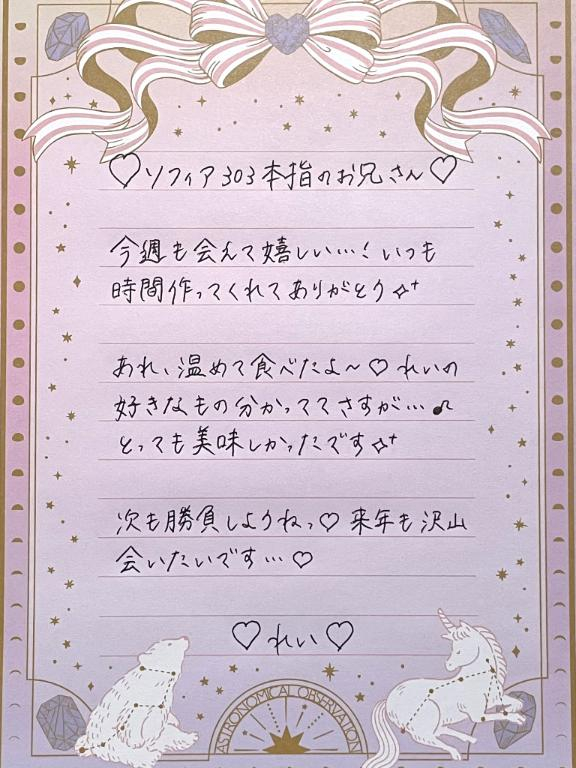 ♡ソフィア303本指のお兄さん♡
今週も会えて嬉しい…！いつも
時間作ってくれてありがとう✧⁺
あれ、温めて食べたよ〜♡れいの
好きなもの分かっててさすが…♪
とっても美味しかったです✧⁺
次も勝負しようねっ♡来年も沢山
会いたいです…♡
♡れい♡
ASTRONOMICAL OBSERVATION